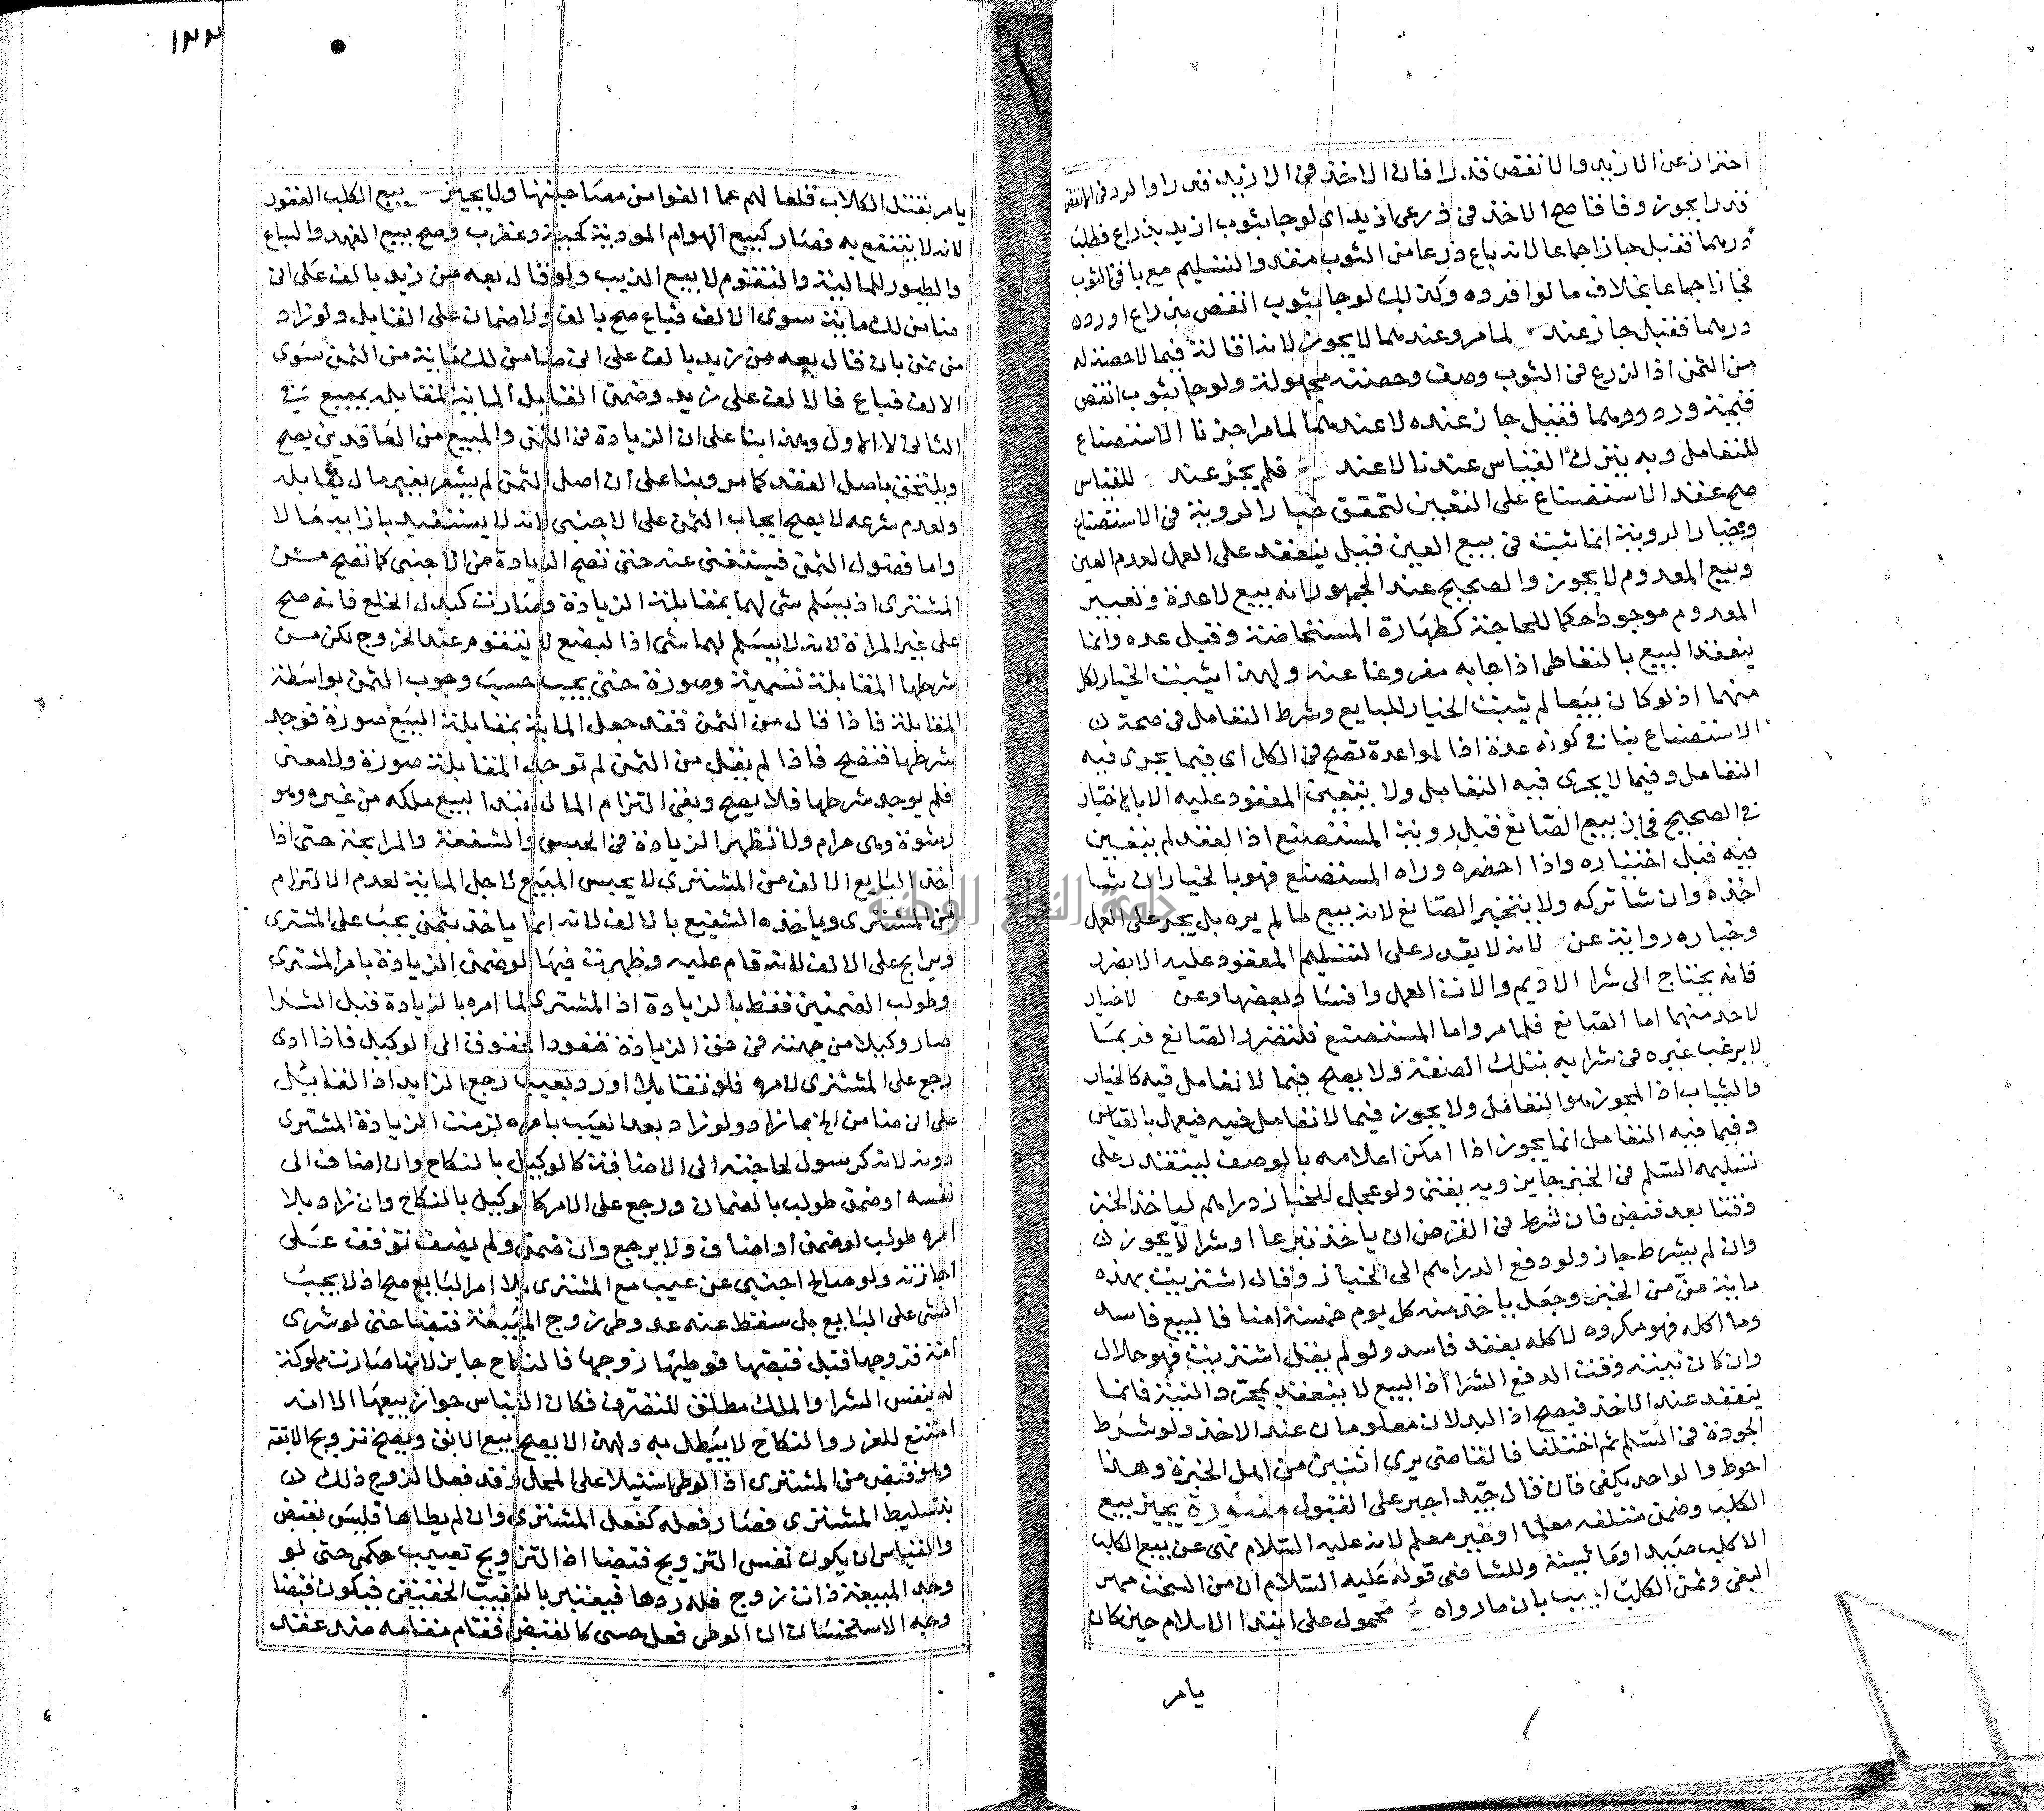 احتراز عن الازيد والانقص قدرا فان الاخذ في الازيد قدرا والرد في الانقص
قدرا يجوز وفاقا صح الاخذ في ذرعى ازيد اى لوجا بثوب ازيد بذراع فطلب
درهما فقبل جاز اجماعا لانه باع ذرعا من الثوب منفد والتسليم مع باقى الثوب
فجاز اجماعا بخلاف ما لو افرده وكذلك لوجا بثوب انقص بذراع اورده
درهما فقبل جاز عند لما مر وعندهما لا يجوز لانه اقالة فيما لا حصة له
من الثمن اذ الذرع فى الثوب وصف وحصته مجهولة ولوجا بثوب انقص
قيمة ورد درهما فقبل جاز عنده لا عندهما لما مر اجزنا الاستصناع
للتعامل وبه يترك القياس عندنا لا عند فلم يجز عند للقياس
صح عقد الاستصناع على التعيين لتحقق خيار الروية فى الاستصناع
وخيار الروية انما يثبت فى بيع العين قيل ينعقد على العمل لعدم العين
وبيع المعدوم لا يجوز والصحيح عند الجمهور انه بيع لا عدة وتعبير
المعدوم موجودا حكما للحاجة كطهارة المستحاضة وقيل عده وانما
ينعقد البيع بالتعاطى اذا جا به مفروغا عنه ولهذا يثبت الخيار لكل
منهما اذ لو كان بيعا لم يثبت الخيار للبايع وشرط التعامل فى صحة ن
الاستصناع ينافي كونه عدة اذ المواعدة تصح فى الكل اى فيما يجرى فيه
التعامل وفيما لا يجرى فيه التعامل ولا يتعين المعقود عليه الا بالاختيار
فى الصحيح فجاز بيع الصانع قبل روية المستصنع اذ العقد لم يتعين
فيه قبل اختياره واذا احضره وراه المستصنع فهو بالخيار ان شا
اخذه وان شا تركه ولا يتخير الصانع لانه بيع ما لم يره بل يجبر على العمل
وخياره رواية عن لانه لا يقدر على التسليم المعقود عليه الا بضرر
فانه يحتاج الى شرا الاديم والات العمل وافساد بعضها وعن لا خيار
لاحد منهما اما الصانع فلما مر واما المستصنع فلتضرر الصانع فربما
لا يرغب غيره فى شرايه بتلك الصفة ولا يصح فيما لا تعامل فيه كالخيار
والثياب اذ المجوز هو التعامل ولا يجوز فيما لا تعامل فيه فيعمل بالقياس
وفيما فيه التعامل انما يجوز اذا امكن اعلامه بالوصف ليتقدر على
تسليمه السلم فى الخبز جايز وبه يفتى ولو عجل للخباز دراهم لياخذ الخبز
وقتا بعد قبض فان شرط فى القرض ان ياخذ تبرعا او شرا لا يجوز ن
وان لم يشرط جاز ولو دفع الدراهم الى الخباز وقال اشتريت بهذه
ماية من من الخبز وجعل ياخذ منه كل يوم خمسة امنا فالبيع فاسد
وما اكله فهو مكروه لاكله بعقد فاسد ولو لم يقل اشتريت فهو حلال
وان كان نيته وقت الدفع الشرا اذ البيع لا ينعقد بمجرد النية فانما
ينعقد عند الاخذ فيصح اذ البدلان معلومان عند الاخذ ولو شرط
الجودة فى السلم ثم اختلفا فالقاضى يرى اثنين من اهل الخبرة وهذا
احوط والواحد يكفى فان قال جيد اجبر على القبول يجيز بيع
الكلب وضمن متلفه معلما او غير معلم لانه عليه السلام نهى عن بيع الكلب
الا كلب صيد او ماشية وللشافعى قوله عليه السلام ان من السحت مهر
البغى وثمن الكلب اجيب بان ما رواه محمول على ابتدا الاسلام حين كان
يامر
١٣٣
يامر بقتل الكلاب قلعا لهم عما الفوا من مصاحبتها ولا يجيز بيع الكلب العقور
لانه لا ينتفع به فصار كبيع الهوام الموذية كحية وعقرب وصح بيع الفهد والسباع
والطيور للمالية والتقوم لا بيع الذيب ولو قال بعه من زيد بالف على انى
ضامن لك ماية سوى الالف فباع صح بالف ولا ضمان على القايل ولو زاد
من ثمن بان قال بعه من زيد بالف على انى ضامن لك ماية من الثمن سوى
الالف فباع فالالف على زيد وضمن القايل الماية لمقابلة بمبيع في
الثانى لا الاول وهذا بنا على ان الزيادة فى الثمن والمبيع من العاقدين يصح
ويلتحق باصل العقد كما مر وبنا على ان اصل الثمن لم يشرع بغير مال يقابله
ولعدم شرعه لا يصح ايجاب الثمن على الاجنبى لانه لا يستفيد بازايه مالا
واما فضول الثمن فيستغنى عنه حتى تصح الزيادة من الاجنبى كما تصح من
المشترى اذ يسلم شى لهما بمقابلة الزيادة وصارت كبدل الخلع فانه صح
على غير المراة لانه لا يسلم لهما شى اذ البضع لا يتقوم عند الخروج لكن من
شرطها المقابلة تسمية وصورة حتى يجب حسب وجوب الثمن بواسطة
المقابلة فاذا قال من الثمن فقد جعل الماية بمقابلة البيع صورة فوجد
شرطها فتصح فاذا لم يقل من الثمن لم توجد المقابلة صورة ولا معنى
فلم يوجد شرطها فلا يصح وبقى التزام المال ابتدا لبيع ملكه من غيره وهو
رشوة وهى حرام ولا تظهر الزيادة فى الحبس والشفعة والمرابحة حتى اذا
اخذ البايع الالف من المشترى لا يحبس المبيع لاجل الماية لعدم الالتزام
من المشترى وياخذه الشفيع بالالف لانه انما ياخذ بثمن يجب على المشترى
ويرابح على الالف لانه قام عليه وظهرت فيها لو ضمن الزيادة بامر المشترى
وطولب الضمين فقط بالزيادة اذ المشترى لما امره بالزيادة قبل الشرا
صار وكيلا من جهته فى حق الزيادة فتعود الحقوق الى الوكيل فاذا ادى
رجع على المشترى لامره فلو تقايلا او رد بعيب رجع الزايد اذ القايل
على انى ضامن الخ بما زاد ولو زاد بعد العيب بامره لزمت الزيادة المشترى
دونه لانه كرسول لحاجته الى الاضافة كالوكيل بالنكاح وان اضاف الى
نفسه او ضمن طولب بالضمان ورجع على الامر كالوكيل بالنكاح وان زاد بلا
امره طولب لو ضمن او اضاف ولا يرجع وان ضمن ولم يضف توقفت على
اجازته ولو صالح اجنبى عن عيب مع المشترى بلا امر البايع صح اذ لا يجب
الشى على البايع بل سقط عنه عد وطى زوج المبيعة قبضا حتى لو شرى
امة فزوجها قبل قبضها فوطيها زوجها فالنكاح جايز لانها صارت مملوكة
له بنفس الشرا والملك مطلق للتصرف فكان القياس جواز بيعها الا انه
امتنع للغرر والنكاح لا يبطل به ولهذا لا يصح بيع الابق ويصح تزويج الابقة
وهو قبض من المشترى اذ الوطى استيلا على المحل وقد فعل الزوج ذلك ن
بتسليط المشترى فصار فعله كفعل المشترى وان لم يطاها فليس بقبض
والقياس ان يكون نفس التزويج قبضا اذ التزويج تعييب حكمى حتى لو
وجد المبيعة ذات زوج فله ردها فيعتبر بالتعييب الحقيقى فيكون قبضا
وجه الاستحسان ان الوطى فعل حسى كالقبض فقام مقامه ضد عقد
جامعة النجاح الوطنية